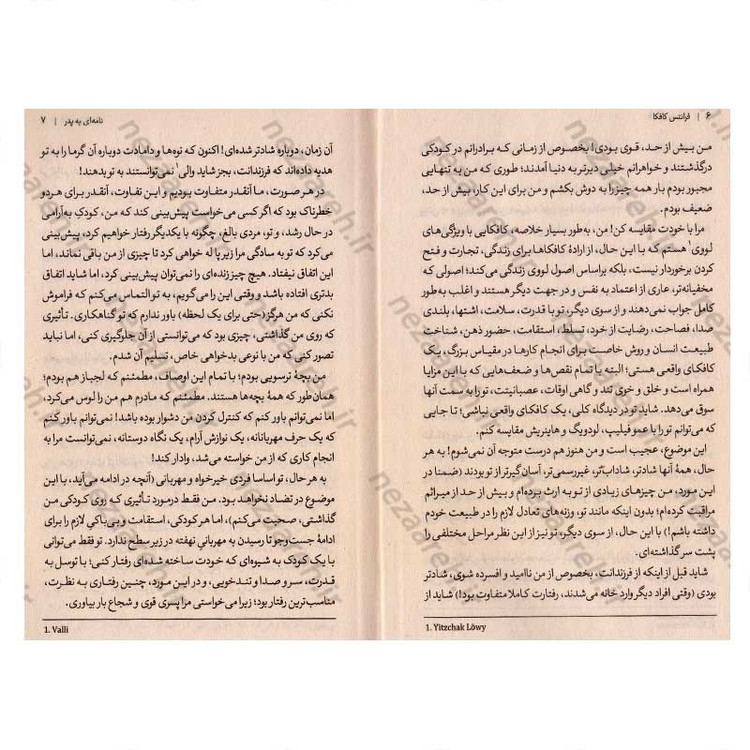 ۶ | فرانتس کافکا
من بیش از حد، قوی بودی! بخصوص از زمانی که برادرانم در کودکی
درگذشتند و خواهرانم خیلی دیرتر به دنیا آمدند؛ طوری که من به تنهایی
مجبور بودم بار همه چیز را به دوش بکشم و من برای این کار، بیش از حد،
ضعیف بودم.
مرا با خودت مقایسه کن! من، به‌طور بسیار خلاصه، کافکایی با ویژگی‌های
لووی۱ هستم که با این حال، از ارادهٔ کافکاها برای زندگی، تجارت و فتح
کردن برخوردار نیست، بلکه براساس اصول لووی زندگی می‌کند؛ اصولی که
مخفیانه‌تر، عاری از اعتماد به نفس و در جهت دیگر هستند و اغلب به‌طور
کامل جواب نمی‌دهند و از سوی دیگر، تو با قدرت، سلامت، اشتها، بلندی
صدا، فصاحت، رضایت از خود، تسلط، استقامت، حضور ذهن، شناخت
طبیعت انسان و روش خاصت برای انجام کارها در مقیاس بزرگ، یک
کافکای واقعی هستی؛ البته با تمام نقص‌ها و ضعف‌هایی که با این مزایا
همراه است و خلق و خوی تند و گاهی اوقات، عصبانیتت، تو را به سمت آنها
سوق می‌دهد. شاید تو در دیدگاه کلی، یک کافکای واقعی نباشی؛ تا جایی
که می‌توانم تو را با عمو فیلیپ، لودویگ و هاینریش مقایسه کنم.
این موضوع، عجیب است و من هنوز هم درست متوجه آن نمی‌شوم! به هر
حال، همهٔ آنها شادتر، شاداب‌تر، غیررسمی‌تر، آسان‌گیرتر از تو بودند (ضمنا در
این مورد، من چیزهای زیادی از تو به ارث برده‌ام و بیش از حد از میراثم
مراقبت کرده‌ام؛ بدون اینکه مانند تو، وزنه‌های تعادل لازم را در طبیعت خودم
داشته باشم!) با این حال، از سوی دیگر، تو نیز از این نظر مراحل مختلفی را
پشت سر گذاشته‌ای.
شاید قبل از اینکه از فرزندانت، بخصوص از من ناامید و افسرده شوی، شادتر
بودی (وقتی افراد دیگر وارد خانه می‌شدند، رفتارت کاملا متفاوت بود!) شاید از
1. Yitzchak Löwy
نامه‌ای به پدر | ۷
آن زمان، دوباره شادتر شده‌ای! اکنون که نوه‌ها و دامادت دوباره آن گرما را به تو
هدیه داده‌اند که فرزندانت، بجز شاید والی۱ نمی‌توانستند به تو بدهند!
در هر صورت، ما آنقدر متفاوت بودیم و این تفاوت، آنقدر برای هر دو
خطرناک بود که اگر کسی می‌خواست پیش‌بینی کند که من، کودکِ به‌آرامی
در حال رشد، و تو، مردی بالغ، چگونه با یکدیگر رفتار خواهیم کرد، پیش‌بینی
می‌کرد که تو به سادگی مرا زیر پا له خواهی کرد تا چیزی از من باقی نماند، اما
این اتفاق نیفتاد. هیچ چیز زنده‌ای را نمی‌توان پیش‌بینی کرد، اما شاید اتفاق
بدتری افتاده باشد و وقتی این را می‌گویم، به تو التماس می‌کنم که فراموش
نکنی که من هرگز (حتی برای یک لحظه) باور ندارم که تو گناهکاری. تأثیری
که روی من گذاشتی، چیزی بود که می‌توانستی از آن جلوگیری کنی، اما نباید
تصور کنی که من با نوعی بدخواهی خاص، تسلیم آن شدم.
من بچهٔ ترسویی بودم؛ با تمام این اوصاف، مطمئنم که لجباز هم بودم؛
همان‌طور که همهٔ بچه‌ها هستند. مطمئنم که مادرم هم من را لوس می‌کرد،
اما نمی‌توانم باور کنم که کنترل کردن من دشوار بوده باشد! نمی‌توانم باور کنم
که یک حرف مهربانانه، یک نوازش آرام، یک نگاه دوستانه، نمی‌توانست مرا به
انجام کاری که از من خواسته می‌شد، وادار کند!
به هر حال، تو اساسا فردی خیرخواه و مهربانی (آنچه در ادامه می‌آید، با این
موضوع در تضاد نخواهد بود. من فقط درمورد تأثیری که روی کودکی من
گذاشتی، صحبت می‌کنم)، اما هر کودکی، استقامت و بی‌باکی لازم را برای
ادامهٔ جست‌وجو تا رسیدن به مهربانیِ نهفته در زیر سطح ندارد. تو فقط می‌توانی
با یک کودک به شیوه‌ای که خودت ساخته شده‌ای رفتار کنی؛ با توسل به
قدرت، سر و صدا و تندخویی، و در این مورد، چنین رفتاری به نظرت،
مناسب‌ترین رفتار بود؛ زیرا می‌خواستی مرا پسری قوی و شجاع بار بیاوری.
1. Valli
nezaareh.ir